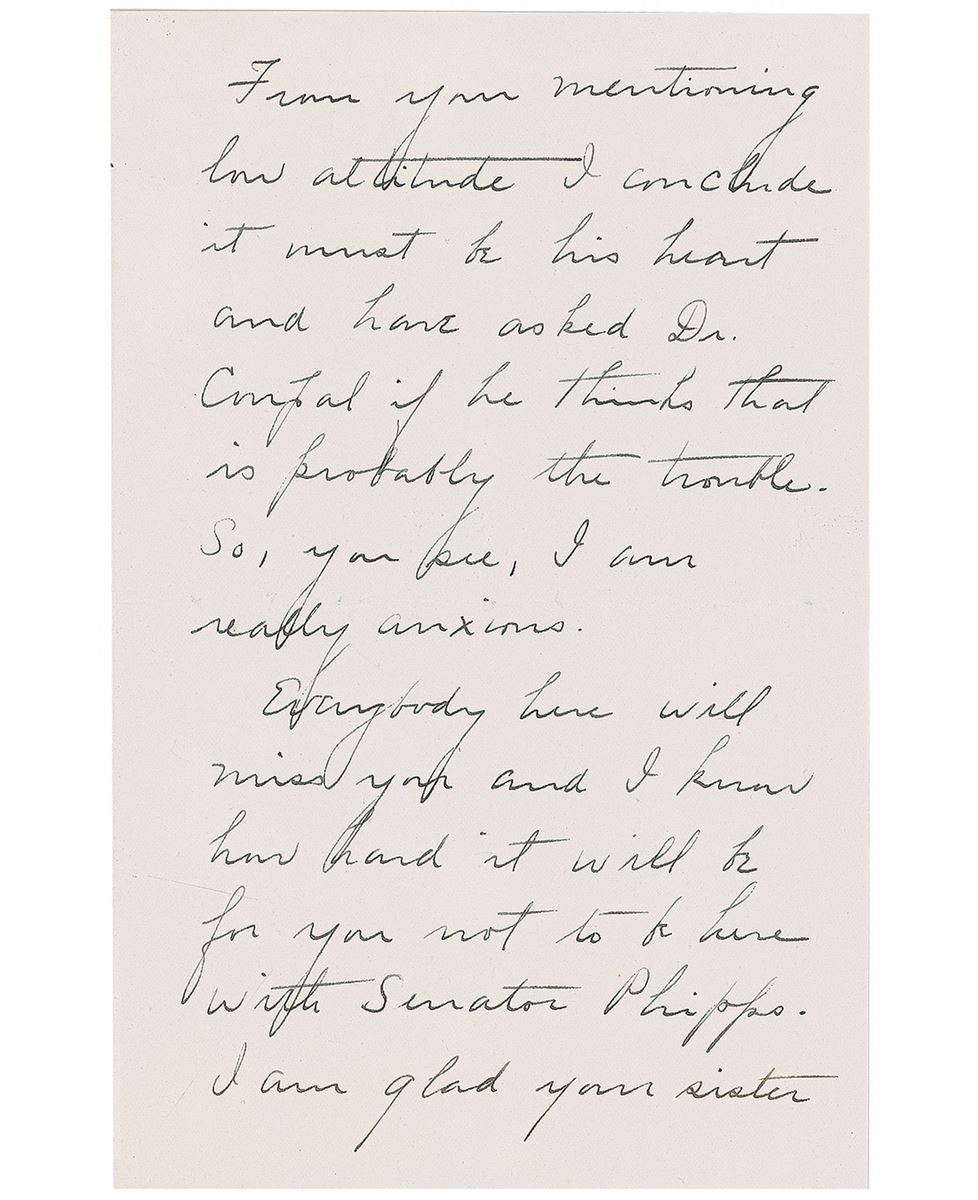 From your mentioning
low altitude I conclude
it must be his heart
and have asked Dr.
Coupal if he thinks that
is probably the trouble.
So, you see, I am
really anxious.
Everybody here will
miss you and I know
how hard it will be
for you not to be here
with Senator Phipps.
I am glad your sister